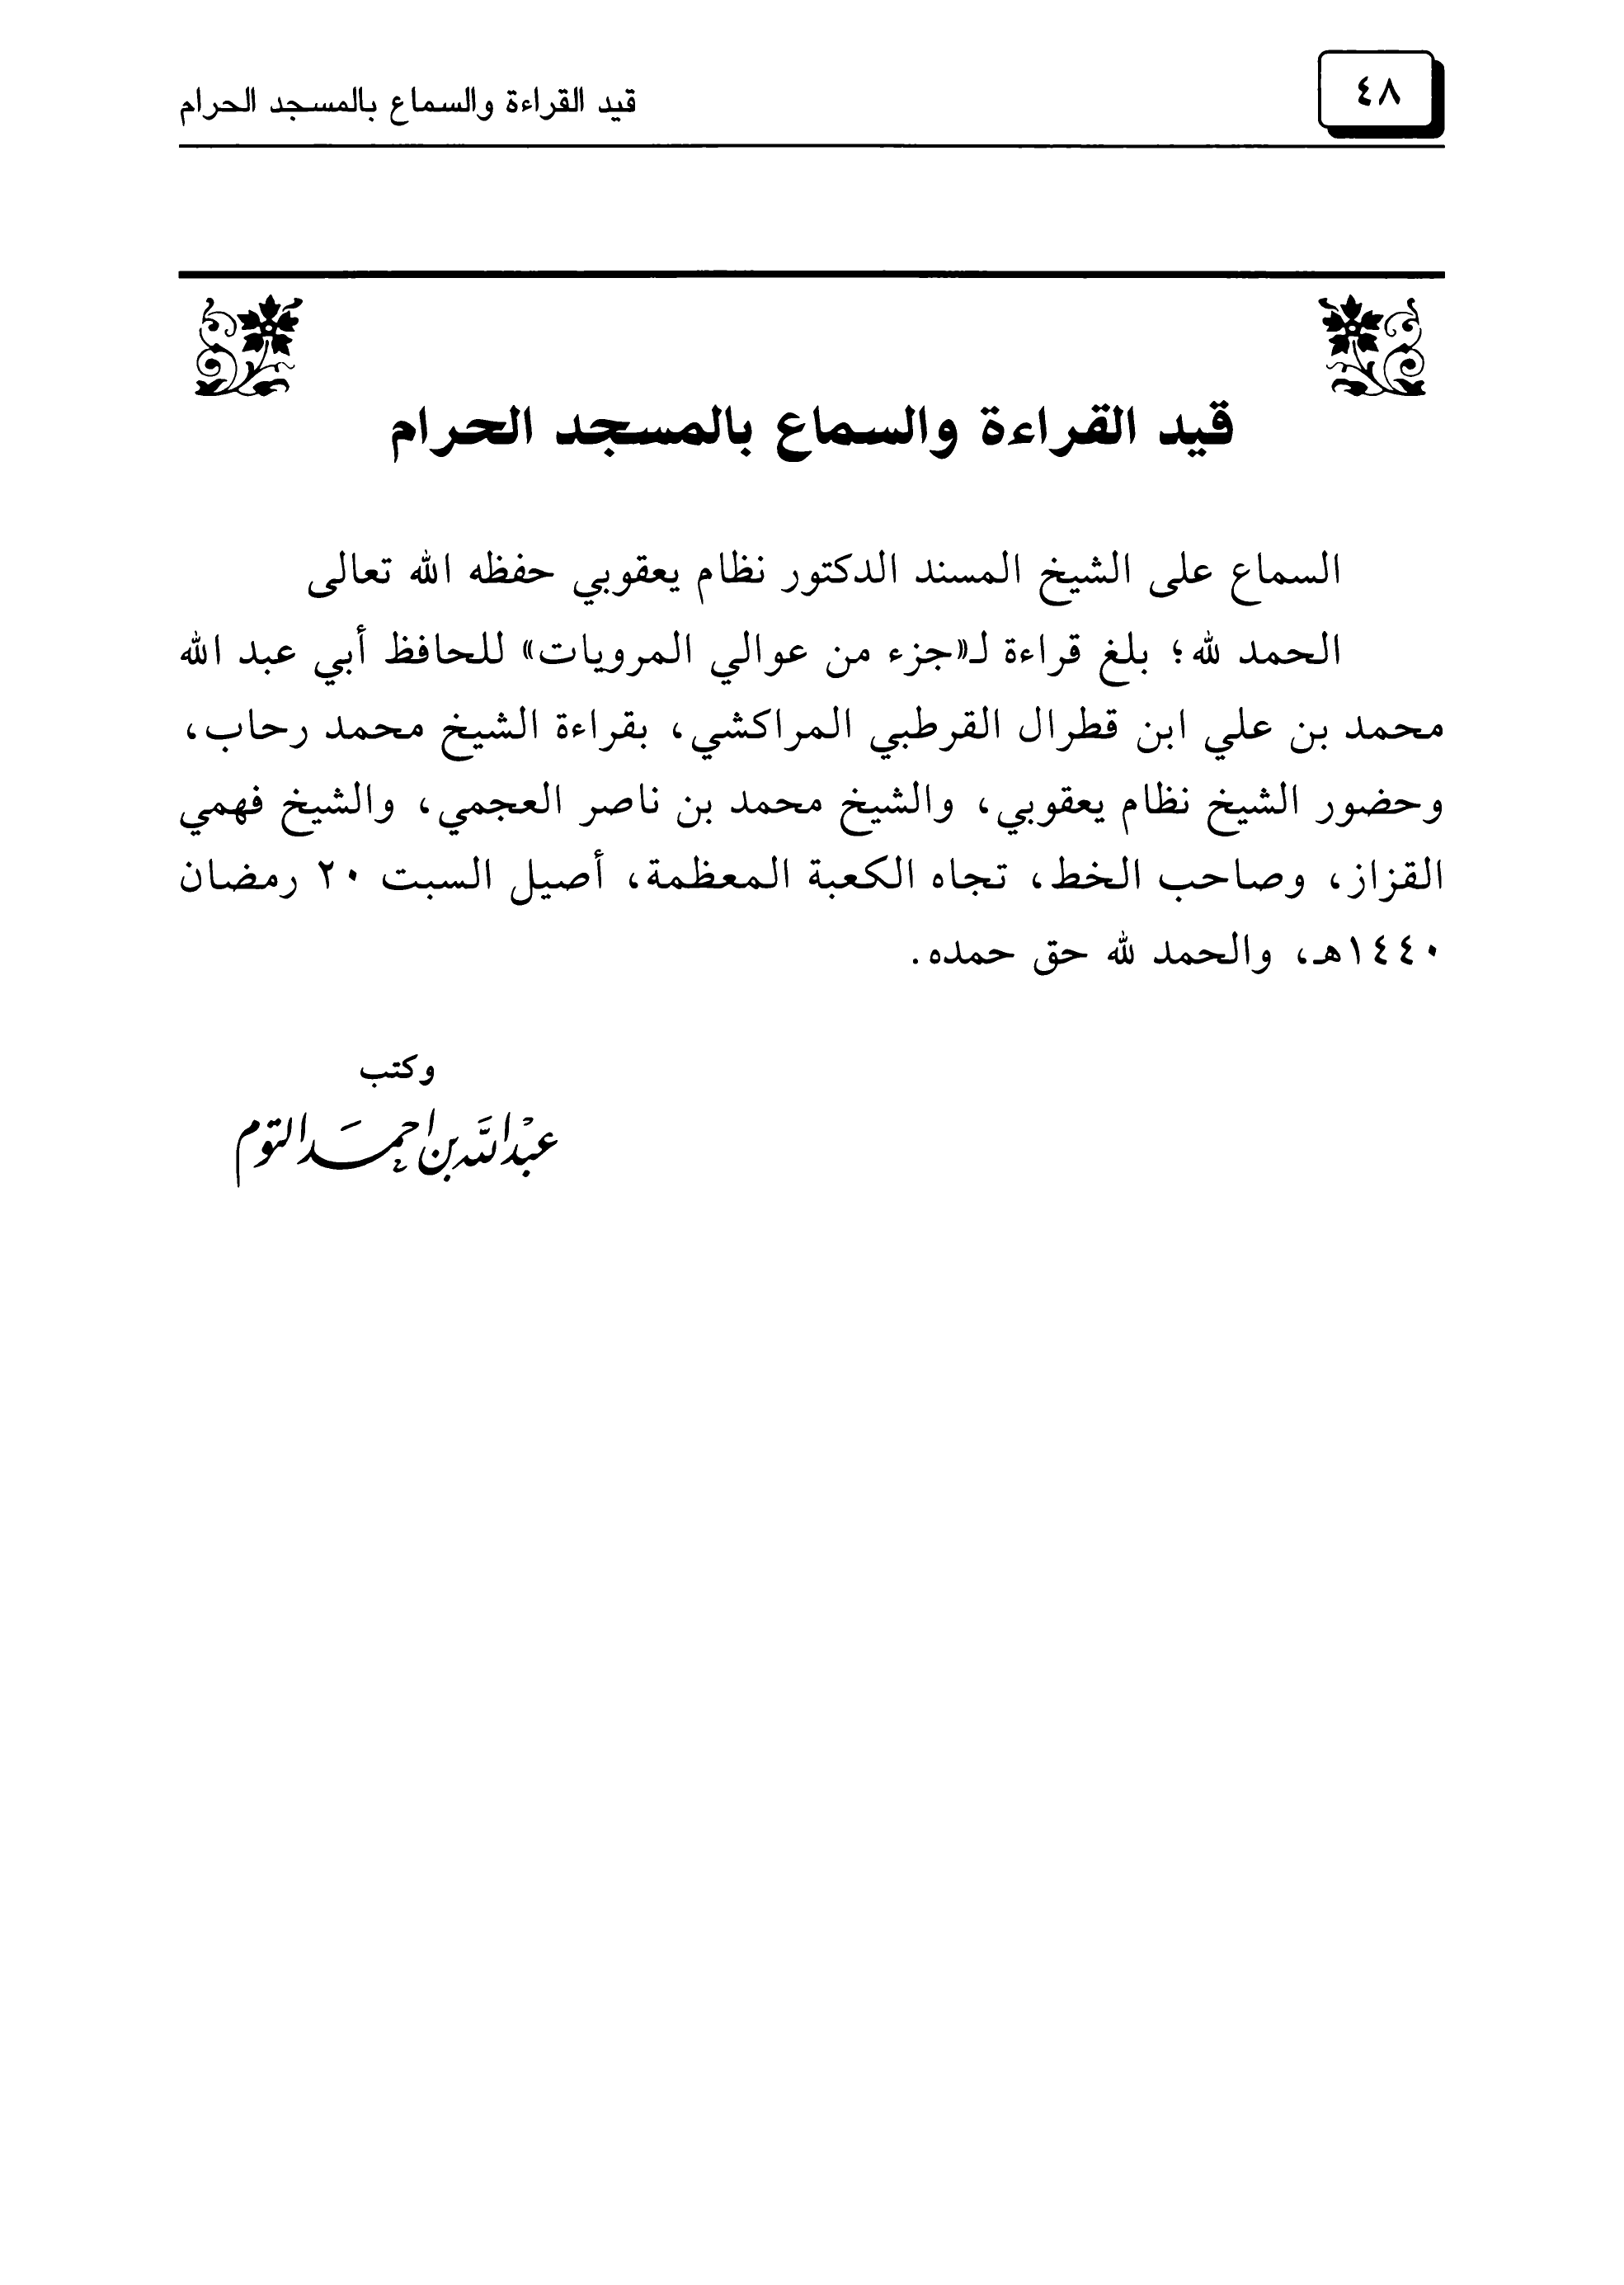 ٤٨
قيد القراءة والسماع بالمسجد الحرام
قيد القراءة والسماع بالمسجد الحرام
السماع على الشيخ المسند الدكتور نظام يعقوبي حفظه الله تعالى
الحمد لله؛ بلغ قراءة لـ«جزء من عوالي المرويات» للحافظ أبي عبد الله
محمد بن علي ابن قطرال القرطبي المراكشي، بقراءة الشيخ محمد رحاب،
وحضور الشيخ نظام يعقوبي، والشيخ محمد بن ناصر العجمي، والشيخ فهمي
القزاز، وصاحب الخط، تجاه الكعبة المعظمة، أصيل السبت ٢٠ رمضان
١٤٤٠هـ، والحمد لله حق حمده.
وكتب
عبد الله بن احمد التوم